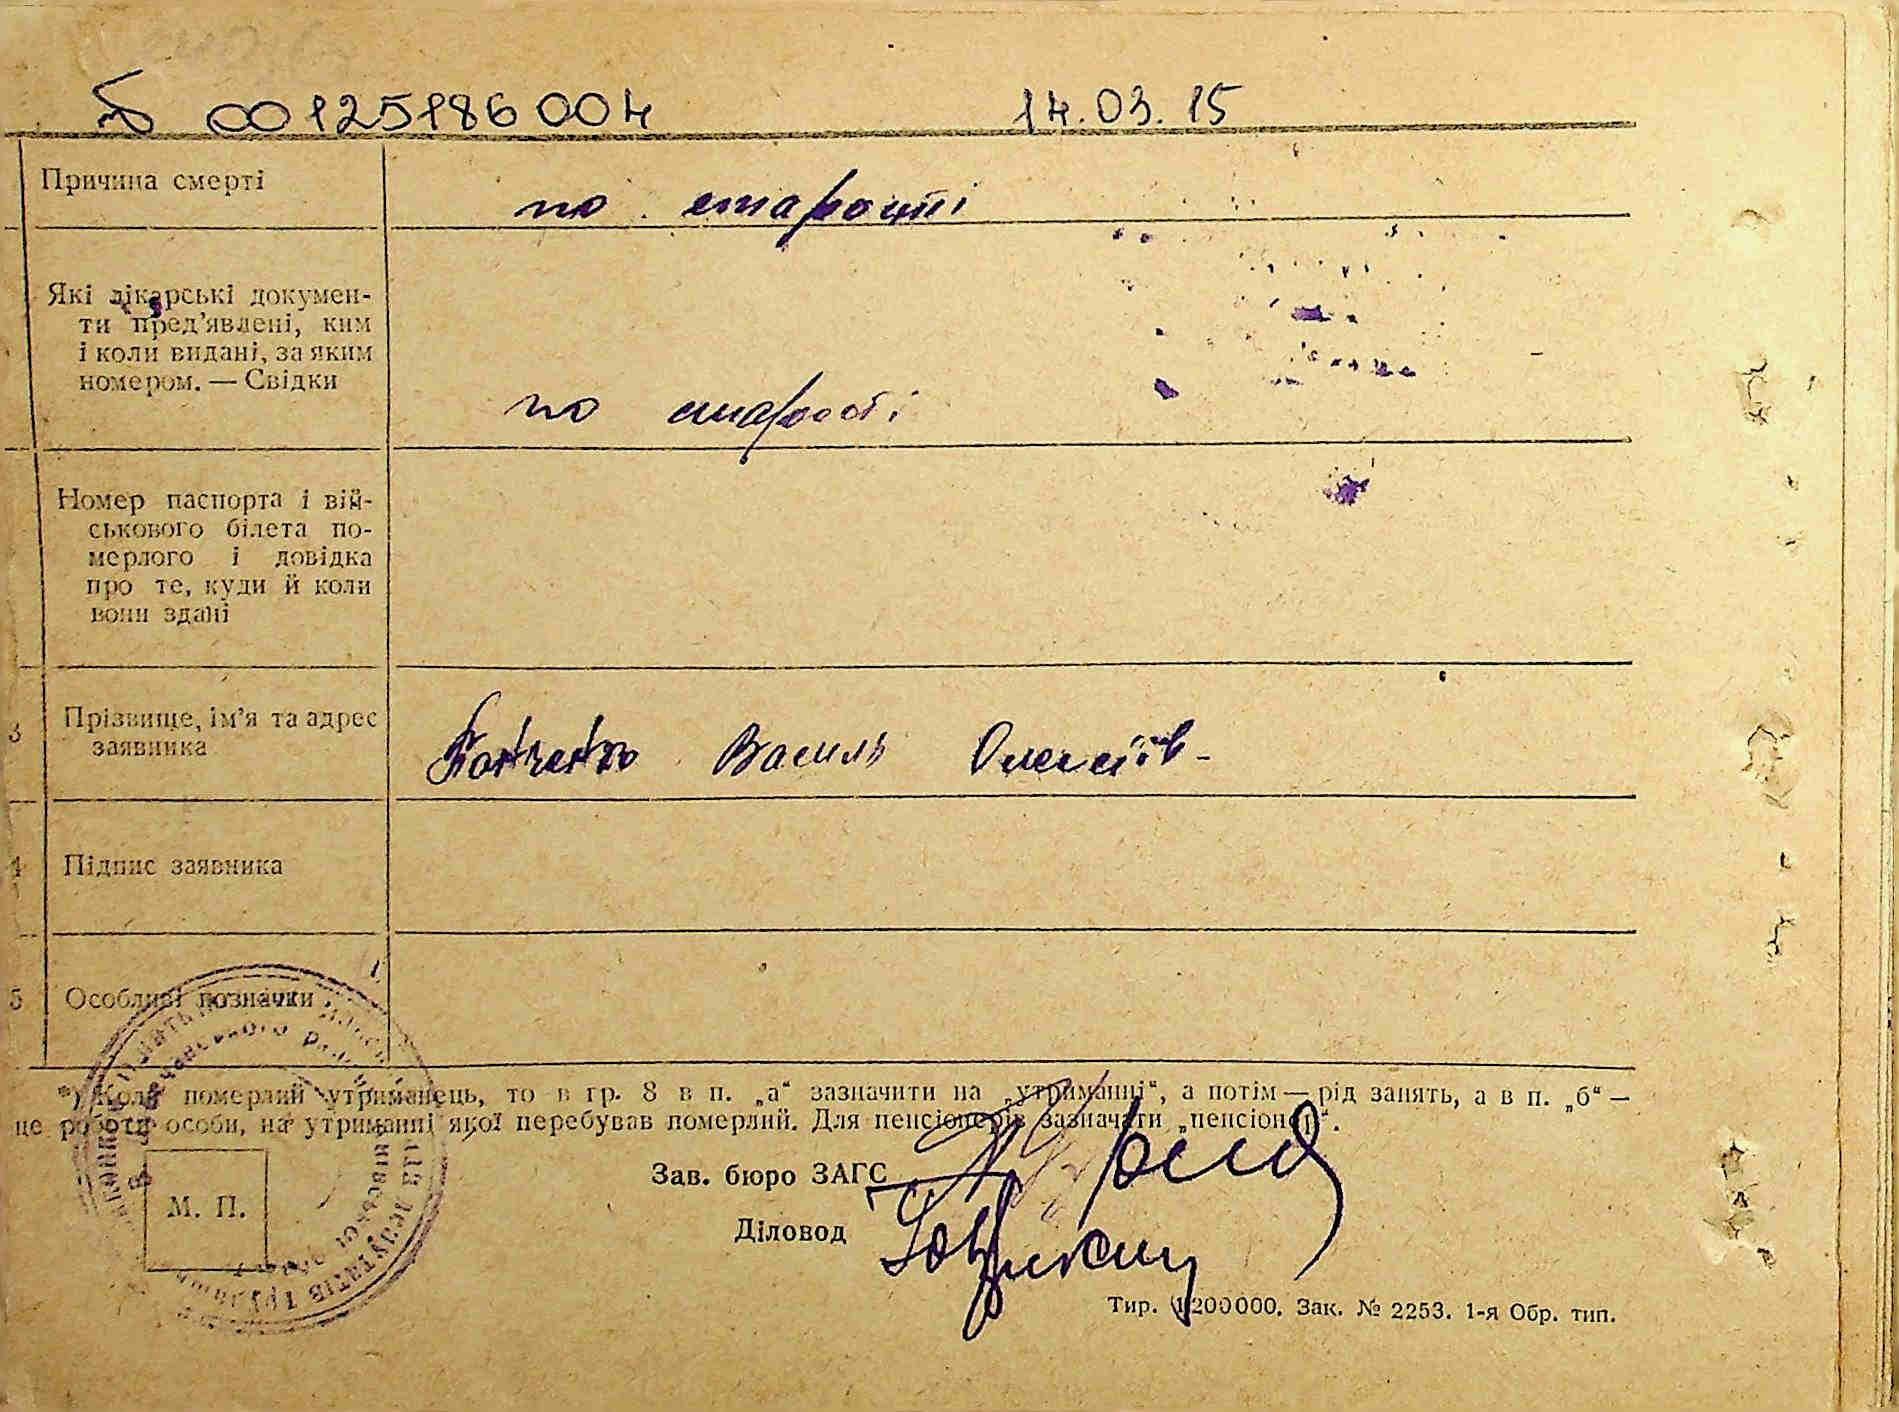 00125186004 14.03.15
Причина смерті
по старості
Які лікарські докумен-
ти пред’явлені, ким
і коли видані, за яким
номером. — Свідки
по старості
Номер паспорта і вій-
ськового білета по-
мерлого і довідка
про те, куди й коли
вони здані
3 Прізвище, ім’я та адрес
заявника
Василь Олексіїв-
4 Підпис заявника
5 Особливі позначки
*) Коли померлий утриманець, то в гр. 8 в п. „а“ зазначити на „утриманні“, а потім — рід занять, а в п. „б“ —
це роботи особи, на утриманні якої перебував померлий. Для пенсіонерів зазначати „пенсіонер“.
Зав. бюро ЗАГС
М. П.
Діловод
Тир. 1200000. Зак. № 2253. 1-я Обр. тип.